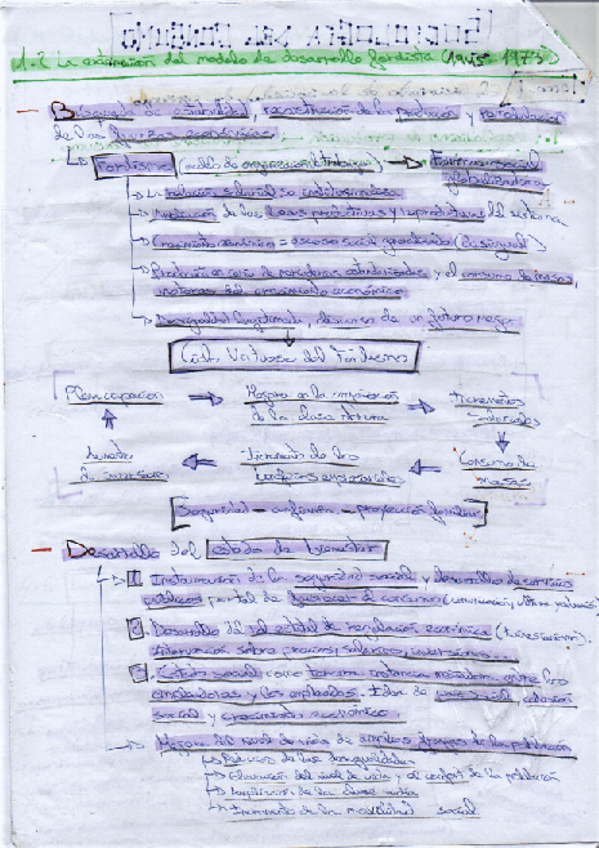 SOCIOLOGÍA DEL CONSUMO
1.2 La extensión del modelo de desarrollo fordista (1945-1973)
Búsqueda de estabilidad, reconstrucción de los y
de las fuerzas económicas
Fordismo (modelo de organización del trabajo) → social
globalizadora
La relación salarial se institucionaliza
de las bases productivas y reproductivas del sistema
Crecimiento económico = ascenso social generalizado (desigual)
Producción en serie de mercancías estandarizadas y el consumo de masas,
motores del crecimiento económico
Desigualdad legitimada, discurso de un futuro mejor
Círculo Virtuoso del Fordismo
Plena ocupación → Mejora en la
de la clase obrera → Incrementos
salariales
Aumento
de inversiones ← Incremento de los
beneficios empresariales ← Consumo de
masas
Seguridad - confianza - proyección familiar
Desarrollo del estado de bienestar
1. Instauración de la seguridad social y desarrollo de servicios
públicos favorecer el consumo (comunicación,
2. Desarrollo del rol estatal de regulación económica (keynesianismo).
Intervención sobre precios, salarios, inversiones...
3. Estado social como tercera instancia mediadora entre los
empleadores y los empleados. Idea de social, cohesión
social y crecimiento económico.
Mejora del nivel de vida de amplios grupos de la población
de las desigualdades
Elevación del nivel de vida y el confort de la población
Ampliación de la clase media
Incremento de la movilidad social